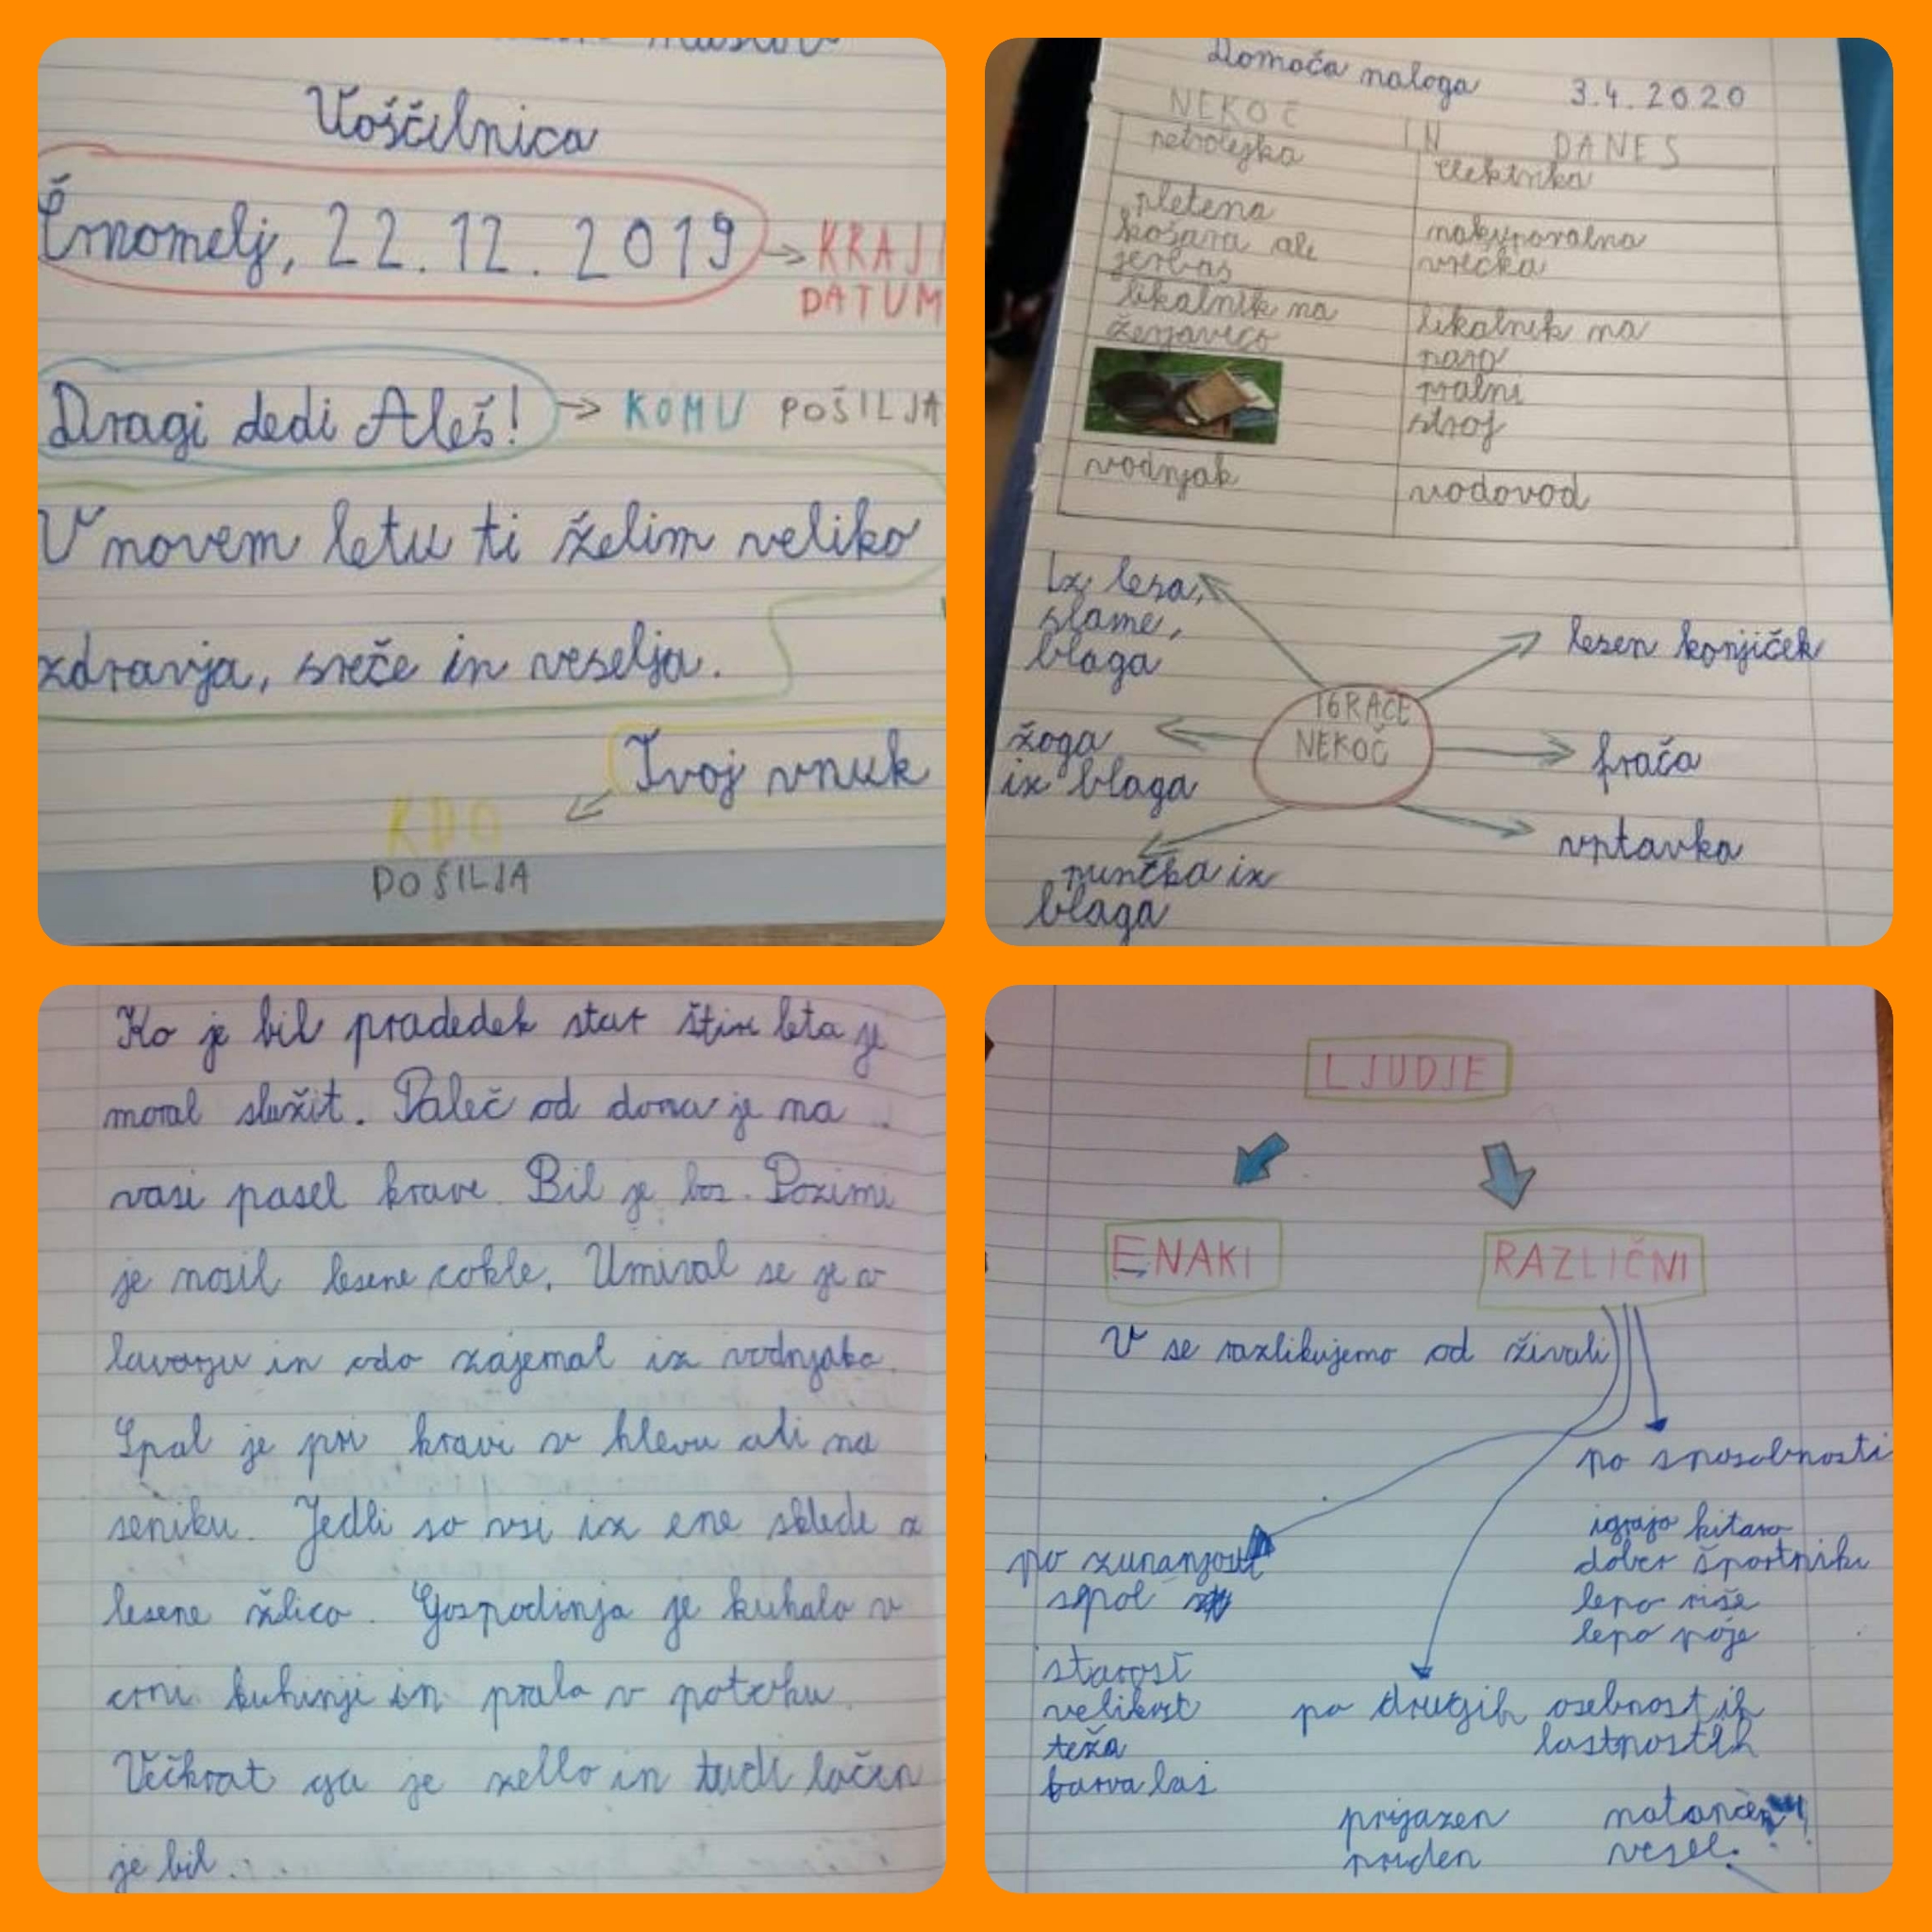 Voščilnica
Črnomelj, 22.12.2019
KRAJ
DATUM
Dragi dedi Aleš!
KOMU POŠILJA
V novem letu ti želim veliko
zdravja, sreče in veselja.
Tvoj vnuk
KDO
POŠILJA
Domača naloga 3.4.2020
NEKOČ IN DANES
petrolejka
elektrika
pletena
košara ali
jerbas
nakupovalna
vrečka
likalnik na
žerjavico
likalnik na
paro
pralni
stroj
vodnjak
vodovod
Iz lesa,
slame,
blaga
lesen konjiček
IGRAČE
NEKOČ
žoga
iz blaga
frača
vrtavka
punčka iz
blaga
Ko je bil pradedek star štiri leta je
moral služit. Daleč od doma je na
vasi pasel krave. Bil je bos. Pozimi
je nosil lesene cokle. Umival se je v
lavorju in vdo zajemal iz vodnjaka.
Spal je pri kravi v hlevu ali na
seniku. Jedli so vsi iz ene sklede z
lesene žlico. Gospodinja je kuhala v
črni kuhinji in prala v potoku.
Večkrat ga je zeblo in tudi lačen
je bil.
LJUDJE
ENAKI
RAZLIČNI
V se razlikujemo od živali
po sposobnosti
igrajo kitaro
dober športniki
lepo riše
lepo poje
po zunanjost
spol
starost
velikost
teža
barva las
po drugih osebnostih
lastnostih
prijazen
priden
natančen
vesel.